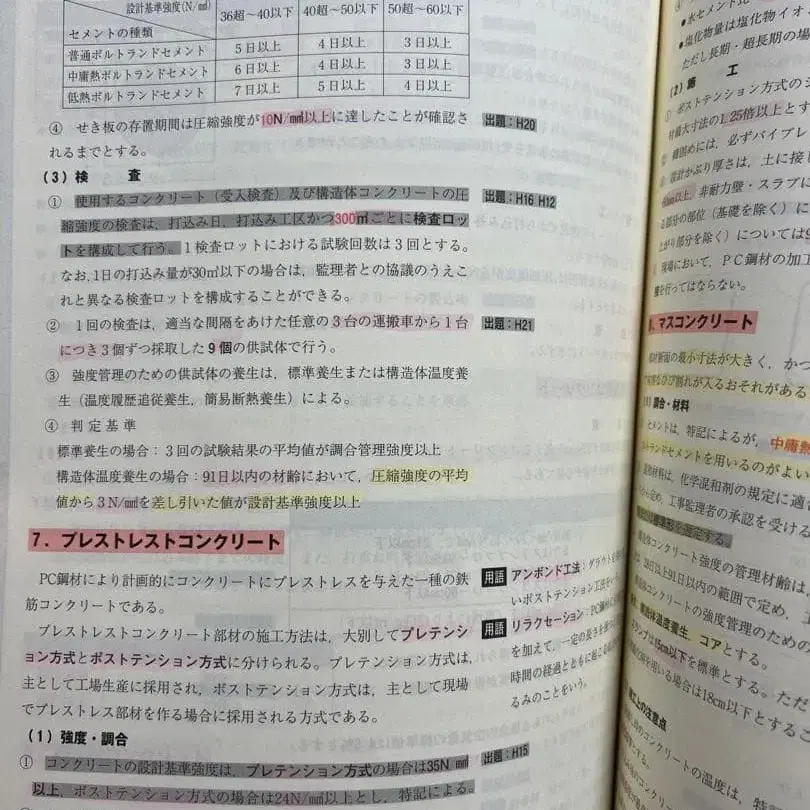 設計基準強度(N/㎟)
セメントの種類
36超～40以下
40超～50以下
50超～60以下
普通ポルトランドセメント 5日以上 4日以上 3日以上
中庸熱ポルトランドセメント 6日以上 4日以上 3日以上
低熱ポルトランドセメント 7日以上 5日以上 4日以上
④ せき板の存置期間は圧縮強度が10N/㎟以上に達したことが確認さ
れるまでとする。
出題：H20
(3) 検 査
① 使用するコンクリート（受入検査）及び構造体コンクリートの圧
縮強度の検査は、打込み日、打込み工区かつ300㎥ごとに検査ロッ
トを構成して行う。1検査ロットにおける試験回数は3回とする。
なお、1日の打込み量が30㎥以下の場合は、監理者との協議のうえこ
れと異なる検査ロットを構成することができる。
出題：H16 H12
② 1回の検査は、適当な間隔をあけた任意の3台の運搬車から1台
につき3個ずつ採取した9個の供試体で行う。
出題：H21
③ 強度管理のための供試体の養生は、標準養生または構造体温度養
生（温度履歴追従養生、簡易断熱養生）による。
④ 判定基準
標準養生の場合：3回の試験結果の平均値が調合管理強度以上
構造体温度養生の場合：91日以内の材齢において、圧縮強度の平均
値から3N/㎟を差し引いた値が設計基準強度以上
7．プレストレストコンクリート
PC鋼材により計画的にコンクリートにプレストレスを与えた一種の鉄
筋コンクリートである。
プレストレストコンクリート部材の施工方法は、大別してプレテンシ
ョン方式とポストテンション方式に分けられる。プレテンション方式は、
主として工場生産に採用され、ポストテンション方式は、主として現場
でプレストレス部材を作る場合に採用される方式である。
用語 アンボンド工法：グラウトを
いポストテンション工法をい
用語 リラクセーション：PC鋼材
を加えて、一定の長さを
時間の経過とともに起こる
るみのことをいう。
(1) 強度・調合
① コンクリートの設計基準強度は、プレテンション方式の場合は35N/㎟
以上、ポストテンション方式の場合は24N/㎟以上とし、特記による。
出題：H15
●水セメント比
●塩化物量は塩化物イオ
ただし長期・超長期の場
(2) 施 工
① ポストテンション方式のシ
骨材最大寸法の1.25倍以上とす
締固めには、必ずバイブレ
設計かぶり厚さは、土に接
以上、非耐力壁・スラブに
る部分の部位（基礎を除く）に
上がり部分を除く）については
現場において、PC鋼材の加工
を行ってはならない。
マスコンクリート
部材断面の最小寸法が大きく、かつ
ひび割れが入るおそれがある
(1) 調合・材料
セメントは、特記によるが、中庸熱
ルトランドセメントを用いるのがよい
混和材料は、化学混和剤の規定に適合
定め、工事監理者の承認を受ける
コンクリート強度の管理材齢は、
28日以上91日以内の範囲で定め、
コンクリートの強度管理のための
温度養生、コアとする。
スランプは15cm以下を標準とする。ただ
を用いる場合は18cm以下とするこ
施工上の注意点
のコンクリートの温度は、特記